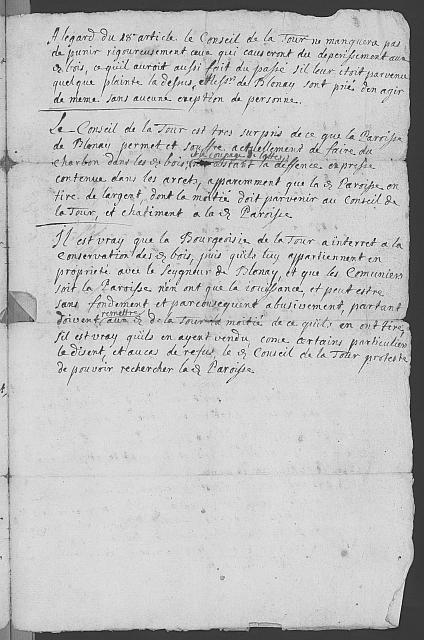 A legard du 18e article le Conseil de la Tour ne manquera pas
de punir rigoureusement ceux qui causeront du deperissement aux
ds bois, ce qu'il auroit aussi fait du passé sil leur etoit parvenu
quelque plainte la desus, et les srs de Blonay sont priés den agir
de meme sans aucune exeption de personne.
Le Conseil de la Tour est tres surpris de ce que la Paroisse
de Blonay permet et souffre actuellement de faire du
et la coupage de lattes
charbon dans les ds bois, nonobstant la deffence expresse
contenue dans les arrets, apparemment que la de Paroisse en
tire de largent, dont la moitié doit parvenir au Conseil de
la Tour, et chatiment a la de Paroisse
Il est vray que la Bourgeoisie de la Tour a interret a la
conservation des ds bois, puis quils luy appartiennent en
proprieté avec le Seigneur de Blonay, et que les Comuniers
soit la Paroisse n'en ont que la jouissance, et peut estre
sans fondement et parconsequent abusivement, partant
remettre
doivent aux ds de la Tour la moitié de ce quils en ont tiré,
sil est vray quils en ayent vendu, come certains particuliers
le disent, et au cas de refus, le d. Conseil de la Tour proteste
de pouvoir rechercher la de Paroisse